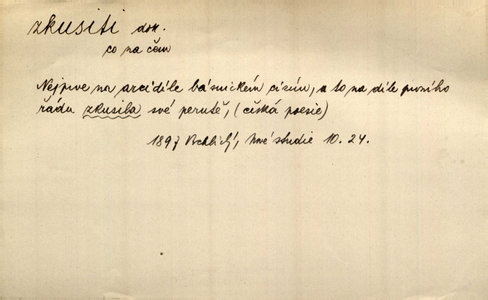 zkusiti dok.
co na čem
Nejprve na arcidíle básnickém cizím, a to na díle prvního
řádu zkusila své perutě, (česká poesie)
1897 Vrchlický, Nové studie 10. 24.